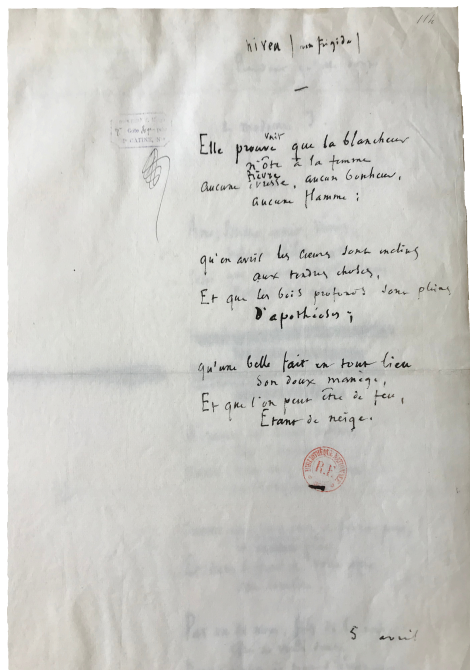 114
nivea (non frigida)
—
vait
Elle prouve que la blancheur
n'ôte à la femme
fièvre
aucune ivresse, aucun bonheur,
aucune flamme ;
qu'en avril les cœurs sont inclins
aux tendres choses,
Et que les bois profonds sont pleins
D'apothéoses ;
qu'une belle fait en tout lieu
Son doux manège,
Et que l'on peut être de feu,
Étant de neige.
BIBLIOTHÈQUE NATIONALE
R.F.
5 avril